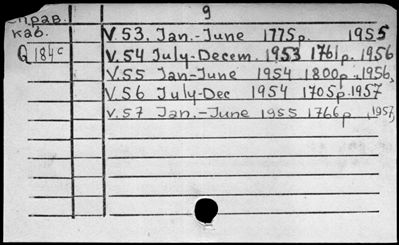 9
Справ.
каб. V.53. Jan.-June 1775p. 1955
Q 184c V.54 July-Decem. 1953 1761p. 1956
V.55 Jan-June 1954 1800p., 1956,
V.56 July-Dec 1954 1705p. 1957
V.57 Jan.-June 1955 1766p, 1957,